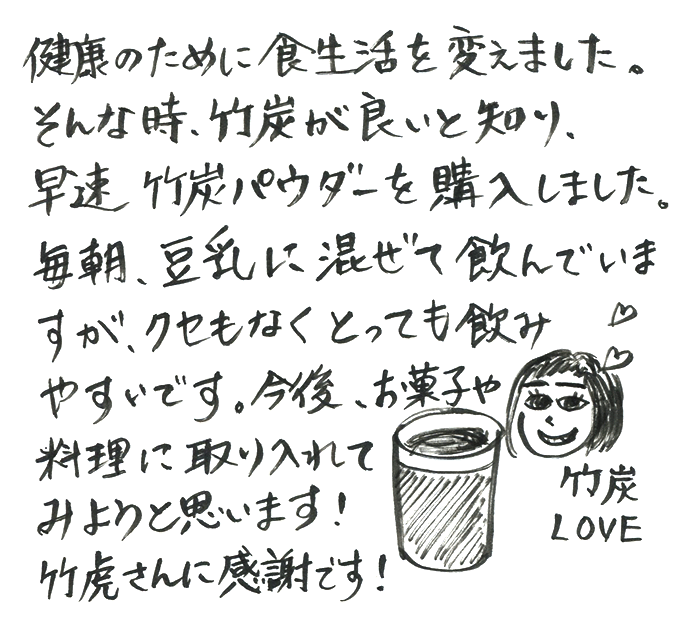 健康のために食生活を変えました。
そんな時、竹炭が良いと知り、
早速 竹炭パウダーを購入しました。
毎朝、豆乳に混ぜて飲んでいま
すが、クセもなくとっても飲み
やすいです。今後、お菓子や
料理に取り入れて
みようと思います！
竹虎さんに感謝です！
竹炭
LOVE